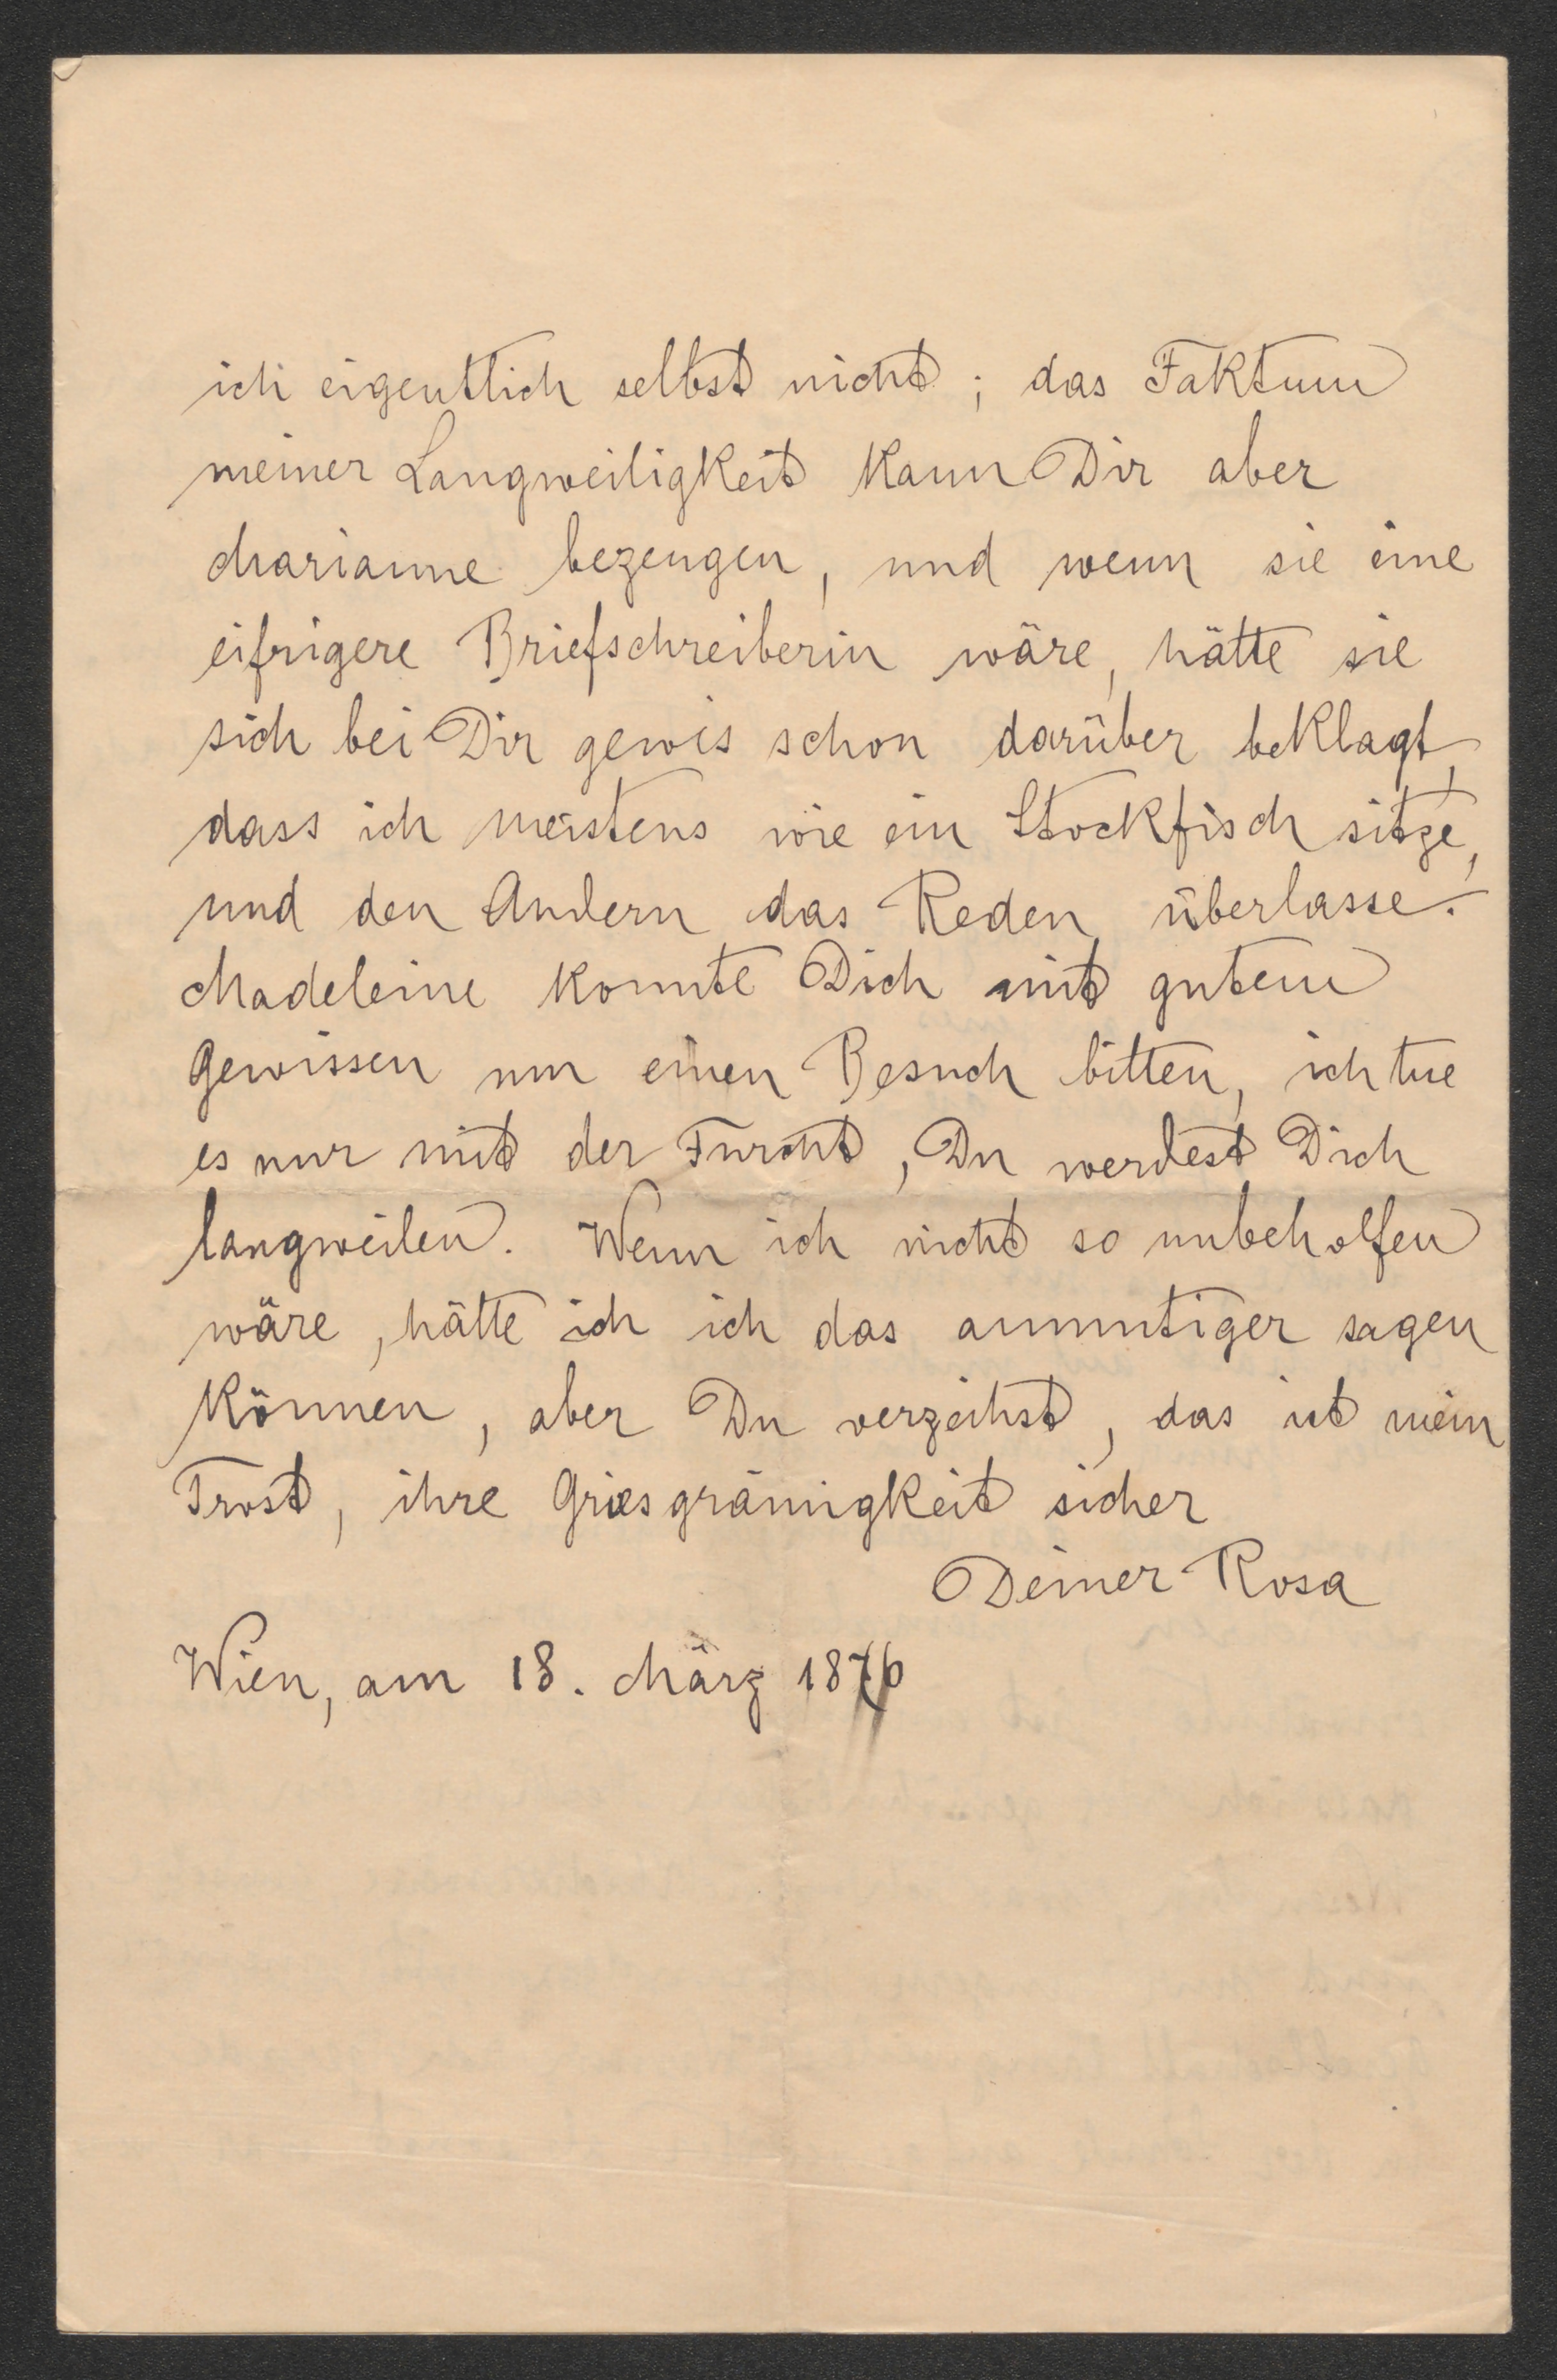 ich eigentlich selbst nicht; das Faktum
meiner Langweiligkeit kann Dir aber
Marianne bezeugen, und wenn sie eine
eifrigere Briefschreiberin wäre, hätte sie
sich bei Dir gewis schon darüber beklagt,
dass ich meistens wie ein Stockfisch sitze,
und den Andern das Reden überlasse.
Madeleine konnte Dich mit gutem
Gewissen um einen Besuch bitten, ich tue
es nur mit der Furcht, Du werdest Dich
langweilen. Wenn ich nicht so unbeholfen
wäre, hätte ich ich das anmutiger sagen
können, aber Du verzeihst, das ist mein
Trost, ihre Griesgrämigkeit sicher
Deiner Rosa
Wien, am 18. März 1876